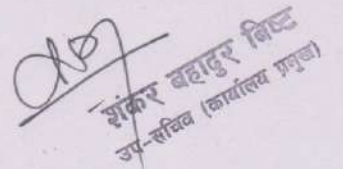 शंकर बहादुर बिष्ट
उप-सचिव (कार्यालय प्रमुख)